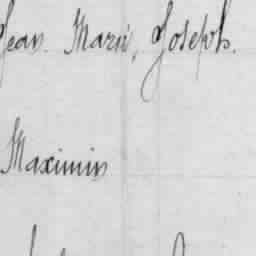 Jean. Marie, Joseph.
Maximin